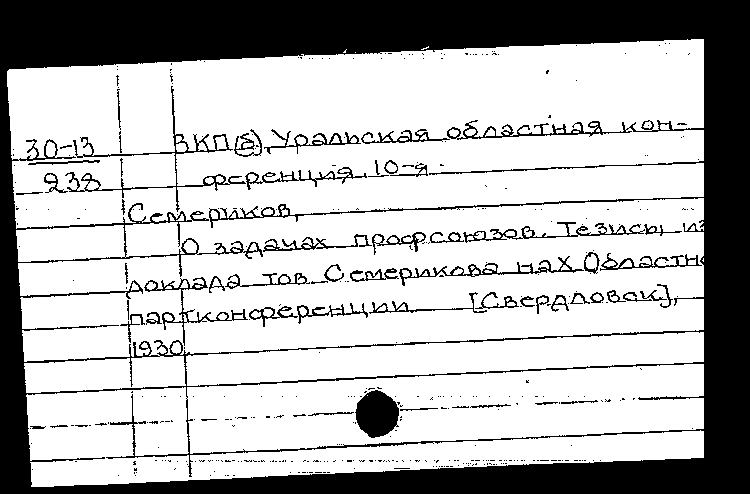 30-13 ВКП(б), Уральская областная кон-
238 ференция, 10-я.
Семериков,
О задачах профсоюзов. Тезисы из
доклада тов. Семерикова на X Областн
партконференции [Свердловск],
1930.